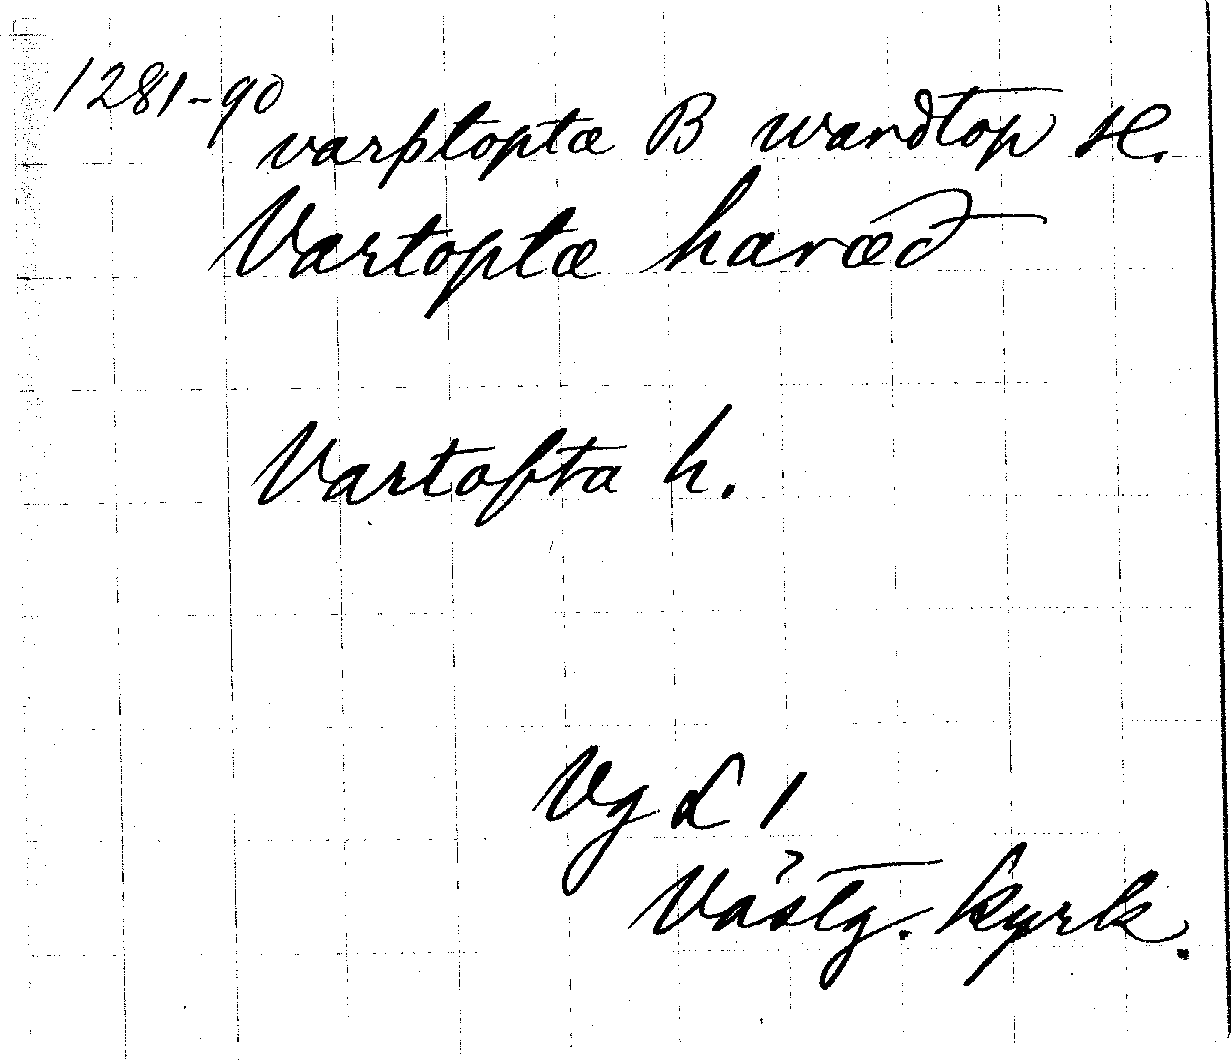 1281-90
varþtoptæ B wardtop H.
Vartoptæ haræd
Vartofta h.
Vg L 1
Västg. kyrk.